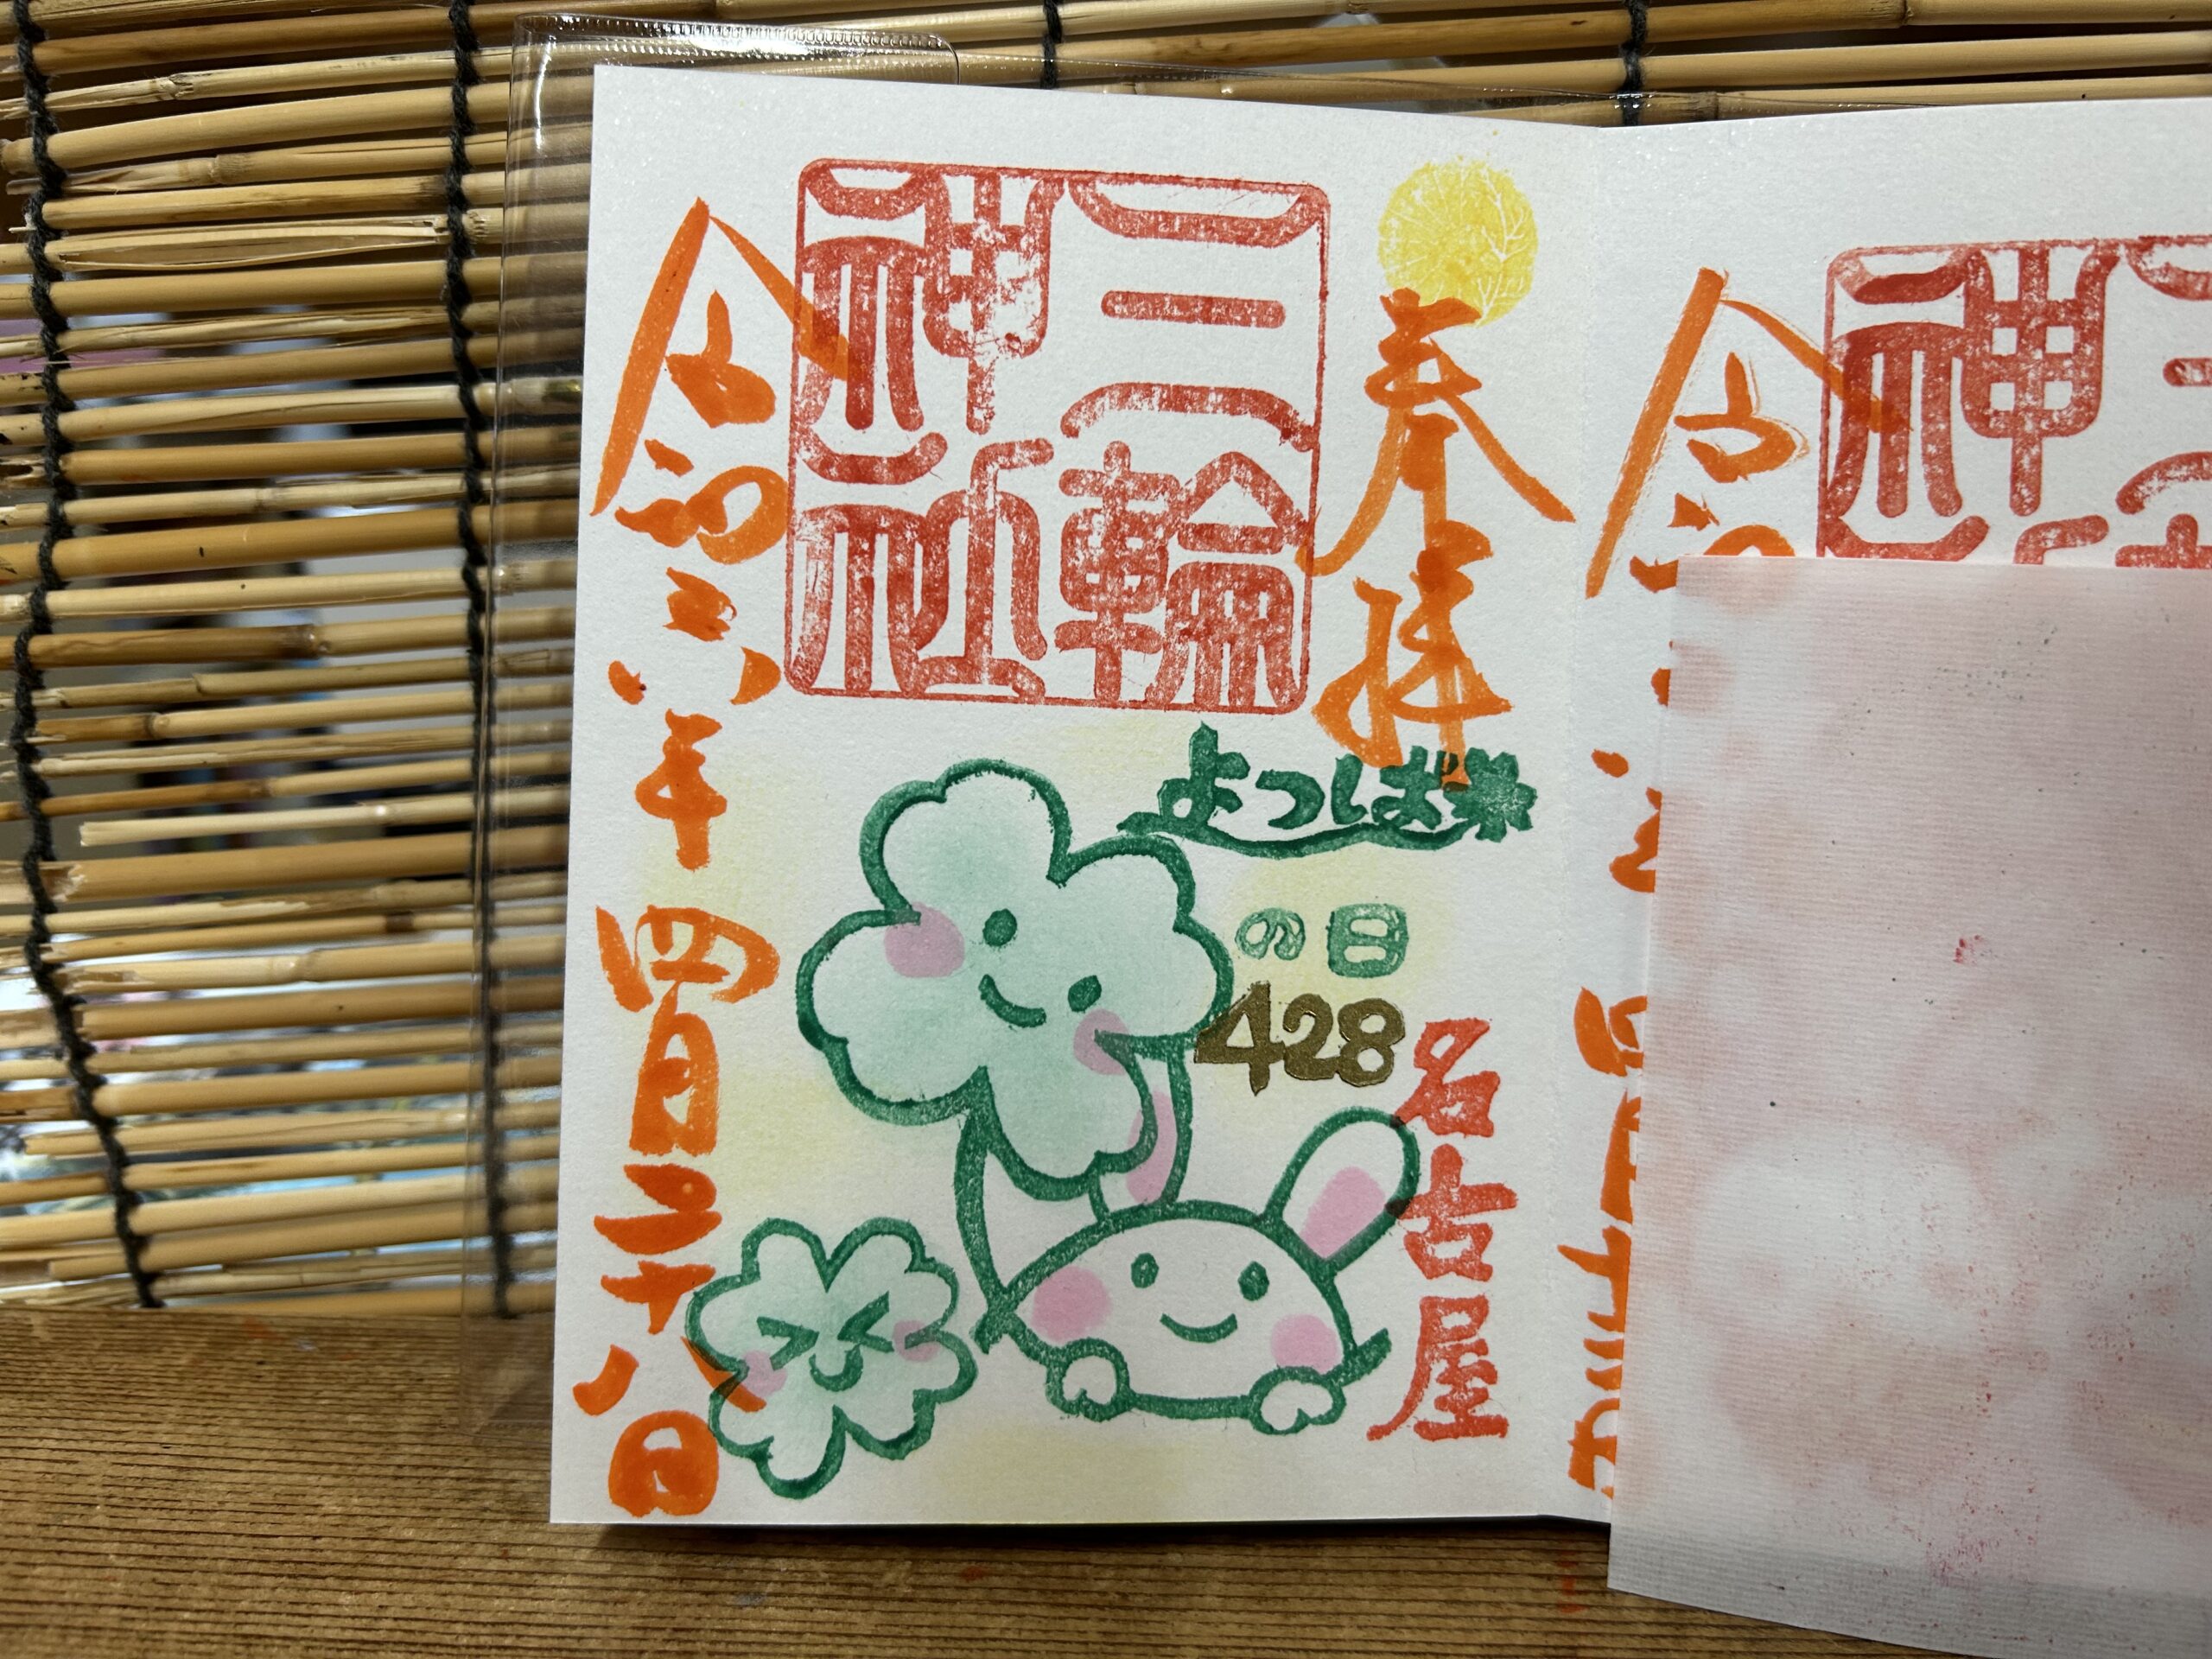 奉拝
三輪
神社
よつば
の日
428
名古屋
令和六年四月二十八日
令
神
三